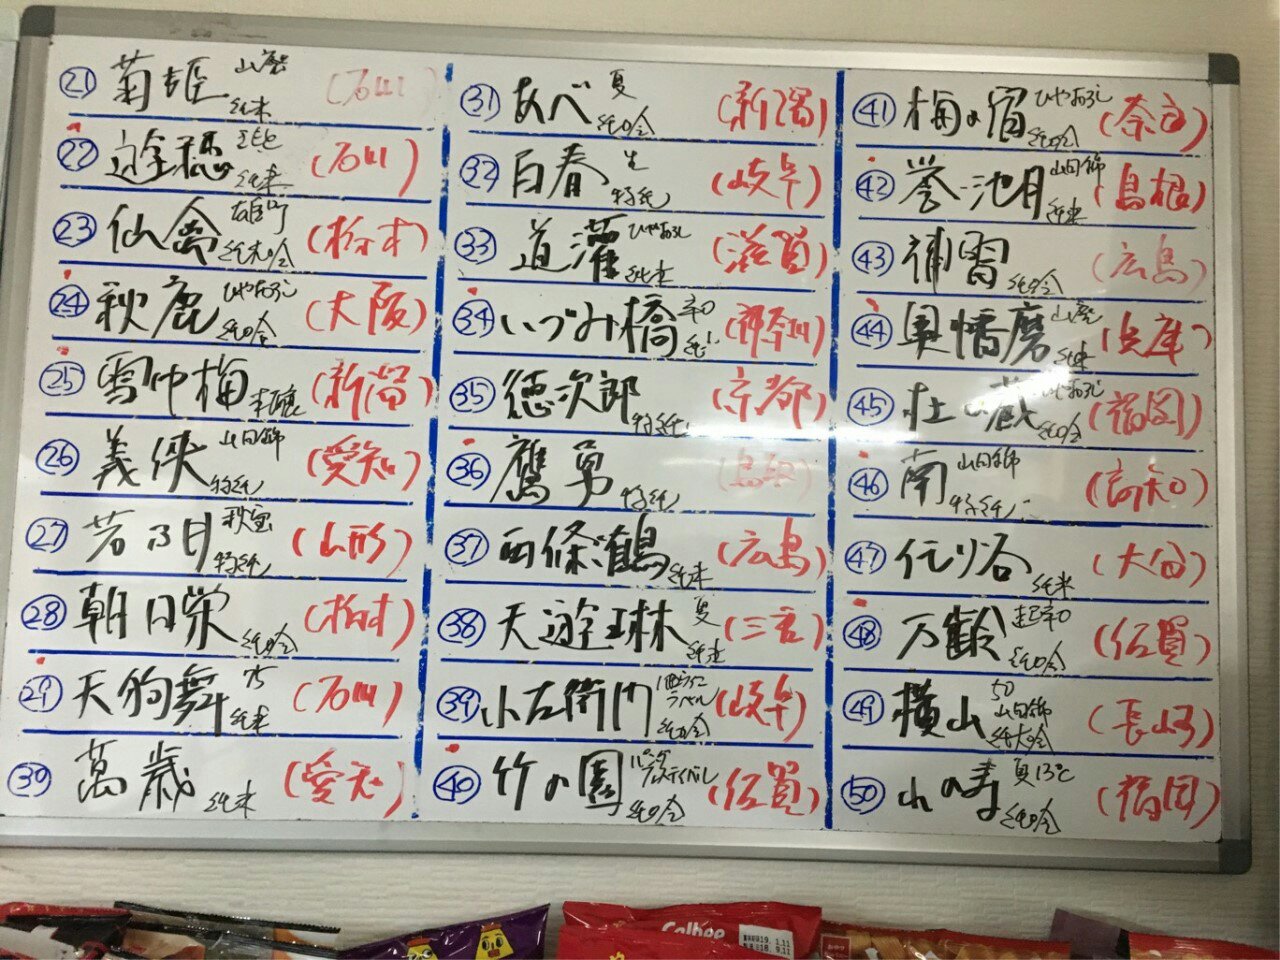 ㉑ 菊姫 山廃 純米 (石川)
㉒ 遊穂 純米 (石川)
㉓ 仙禽 雄町 純米吟 (栃木)
㉔ 秋鹿 ひやおろし 純吟 (大阪)
㉕ 雪中梅 本醸 (新潟)
㉖ 義侠 山田錦 特純 (愛知)
㉗ 若乃月 特純 (山形)
㉘ 朝日栄 純吟 (栃木)
㉙ 天狗舞 純米 (石川)
㊴ 萬歳 純米 (愛知)
㉛ あべ 夏 純吟 (新潟)
㉜ 百春 生 特純 (岐阜)
㉝ 道灌 ひやおろし 純米 (滋賀)
㉞ いづみ橋 (神奈川)
㉟ 徳次郎 特純 (京都)
㊱ 鷹勇 特純 (鳥取)
㊲ 西條鶴 純米 (広島)
㊳ 天遊琳 夏 純米 (三重)
㊴ 小左衛門 ラベル 純吟 (岐阜)
㊵ 竹の園 フェスティバル 純吟 (佐賀)
㊶ 梅の宿 ひやおろし 純吟 (奈良)
㊷ 誉池月 山田錦 純米 (島根)
㊸ 補雷 純吟 (広島)
㊹ 奥播磨 山廃 純米 (兵庫)
㊺ 杜の蔵 ひやおろし 純吟 (福岡)
㊻ 南 山田錦 特純 (高知)
㊼ 佗り谷 純米 (大分)
㊽ 万齢 超辛口 純吟 (佐賀)
㊾ 横山 50 山田錦 純大吟 (長崎)
㊿ 山の寿 夏13℃ 純吟 (福岡)
Calbee
賞味2019.1.11
製造2018.9.11